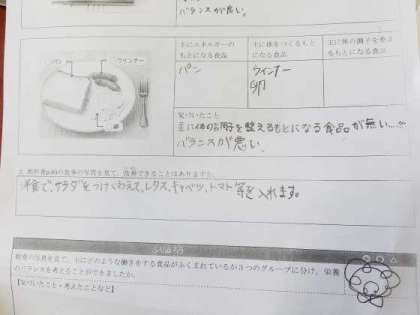 バランスが悪い。
主にエネルギーの
もとになる食品
主に体をつくるもと
になる食品
主に体の調子を整える
もとになる食品
パン
ウインナー
パン
ウインナー
卵
気づいたこと
主に体の調子を整えるもとになる食品が無い……
バランスが悪い。
洋食で、サラダをつけくわえて、レタス、キャベツ、トマト等を入れます。
ふりかえり
朝食の写真を見て、主にどのような働きをする食品がふくまれているか3つのグループに分け、栄養
のバランスを考えることができましたか。
【気づいたこと・考えたことなど】